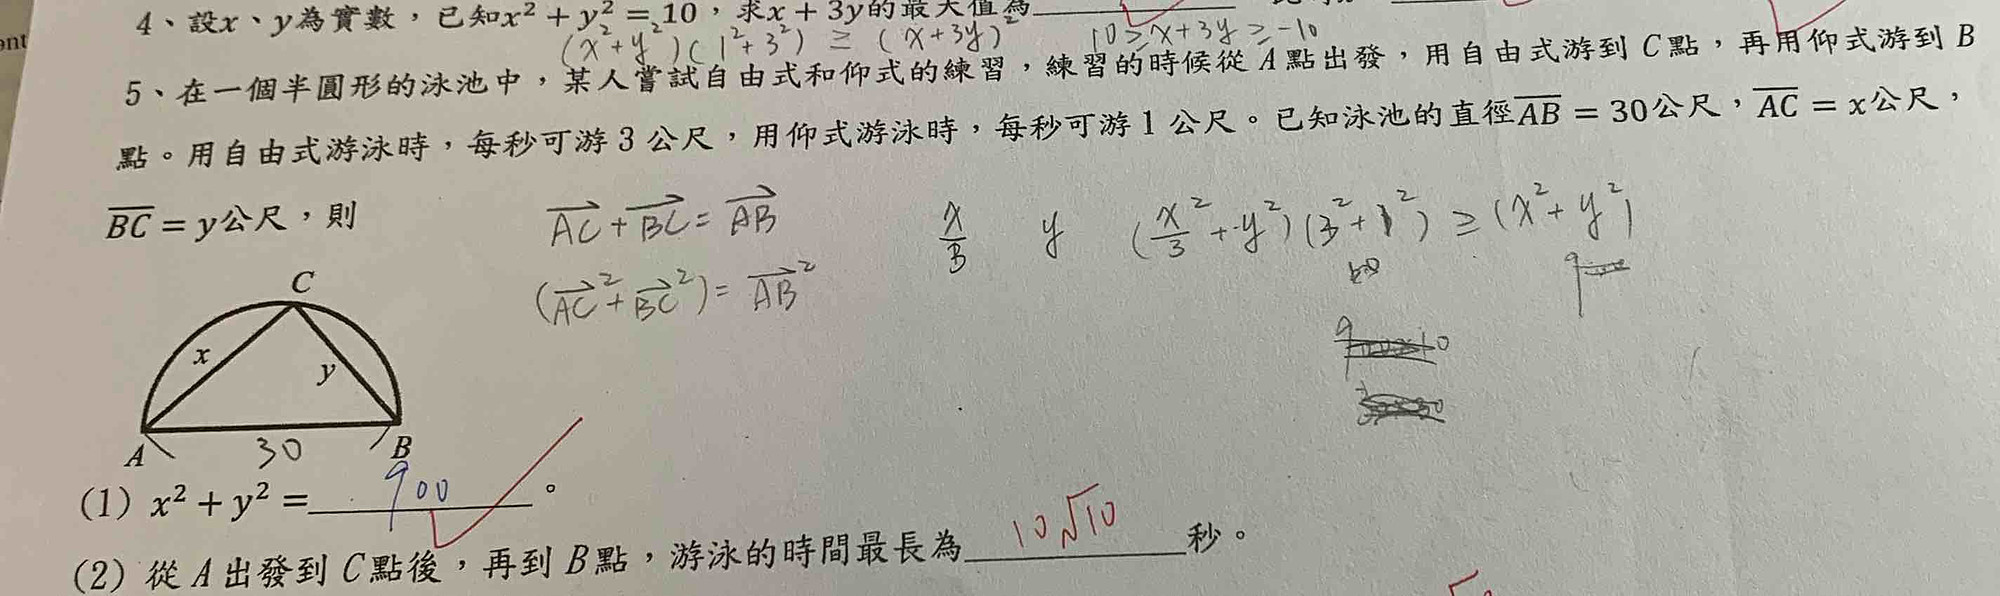 4、設x、y為實數，已知x² + y² = 10，求x + 3y的最大值為
(x²+y²)(1²+3²) ≥ (x+3y)² 10≥x+3y≥-10
5、在一個半圓形的泳池中，某人嘗試自由式和仰式的練習，練習的時候從 A 點出發，用自由式游到 C 點，再用仰式游到 B
點。用自由式游泳時，每秒可游 3 公尺，用仰式游泳時，每秒可游 1 公尺。已知泳池的直徑AB = 30公尺，AC = x公尺，
BC = y公尺，則
AC+BC=AB
x/3 y (x²/3+y²)(3²+1²) ≥ (x²+y²)
(AC²+BC²)=AB²
C
x
y
A
30
B
(1) x² + y² = 900。
(2) 從 A 出發到 C 點後，再到 B 點，游泳的時間最長為 10√10 秒。